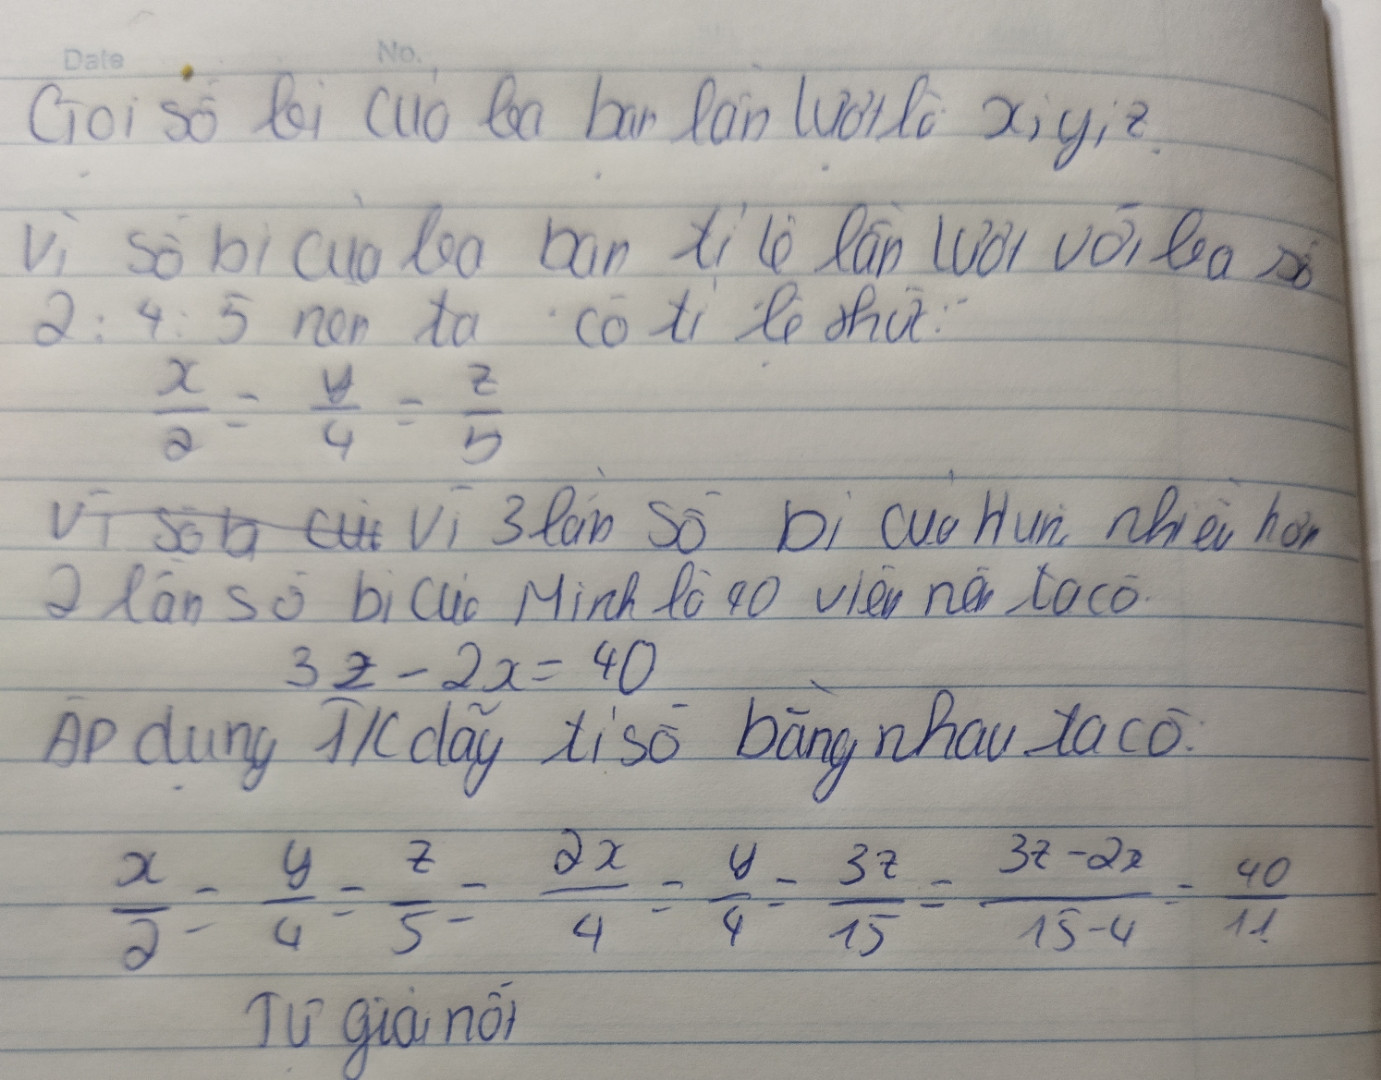 Date No.
Gọi số bi của ba bạn lần lượt là x; y; z
Vì số bi của ba bạn tỉ lệ lần lượt với ba số
2 : 4 : 5 nen ta có tỉ lệ thức:
x/2 = y/4 = z/5
Vì số bi củ Vì 3 lần số bi của Hun nhiều hơn
2 lần số bi của Minh là 40 viên nên ta có.
3z - 2x = 40
ÁP dụng T/C dãy tỉ số bằng nhau ta có:
x/2 = y/4 = z/5 = 2x/4 = y/4 = 3z/15 = 3z-2x/15-4 = 40/11
Tự giải nối